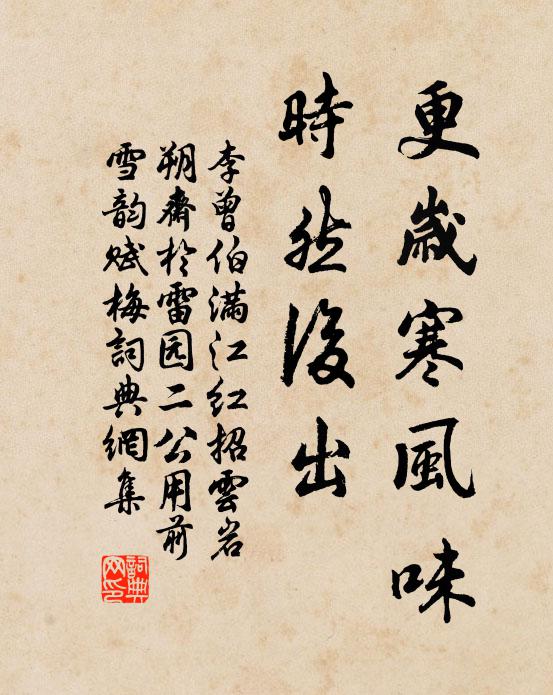 更歲寒風味
時然後出
李曾伯滿江红招雲岩
朔齋於雷园二公用前
雪韵赋梅詞典網集
詞典网印